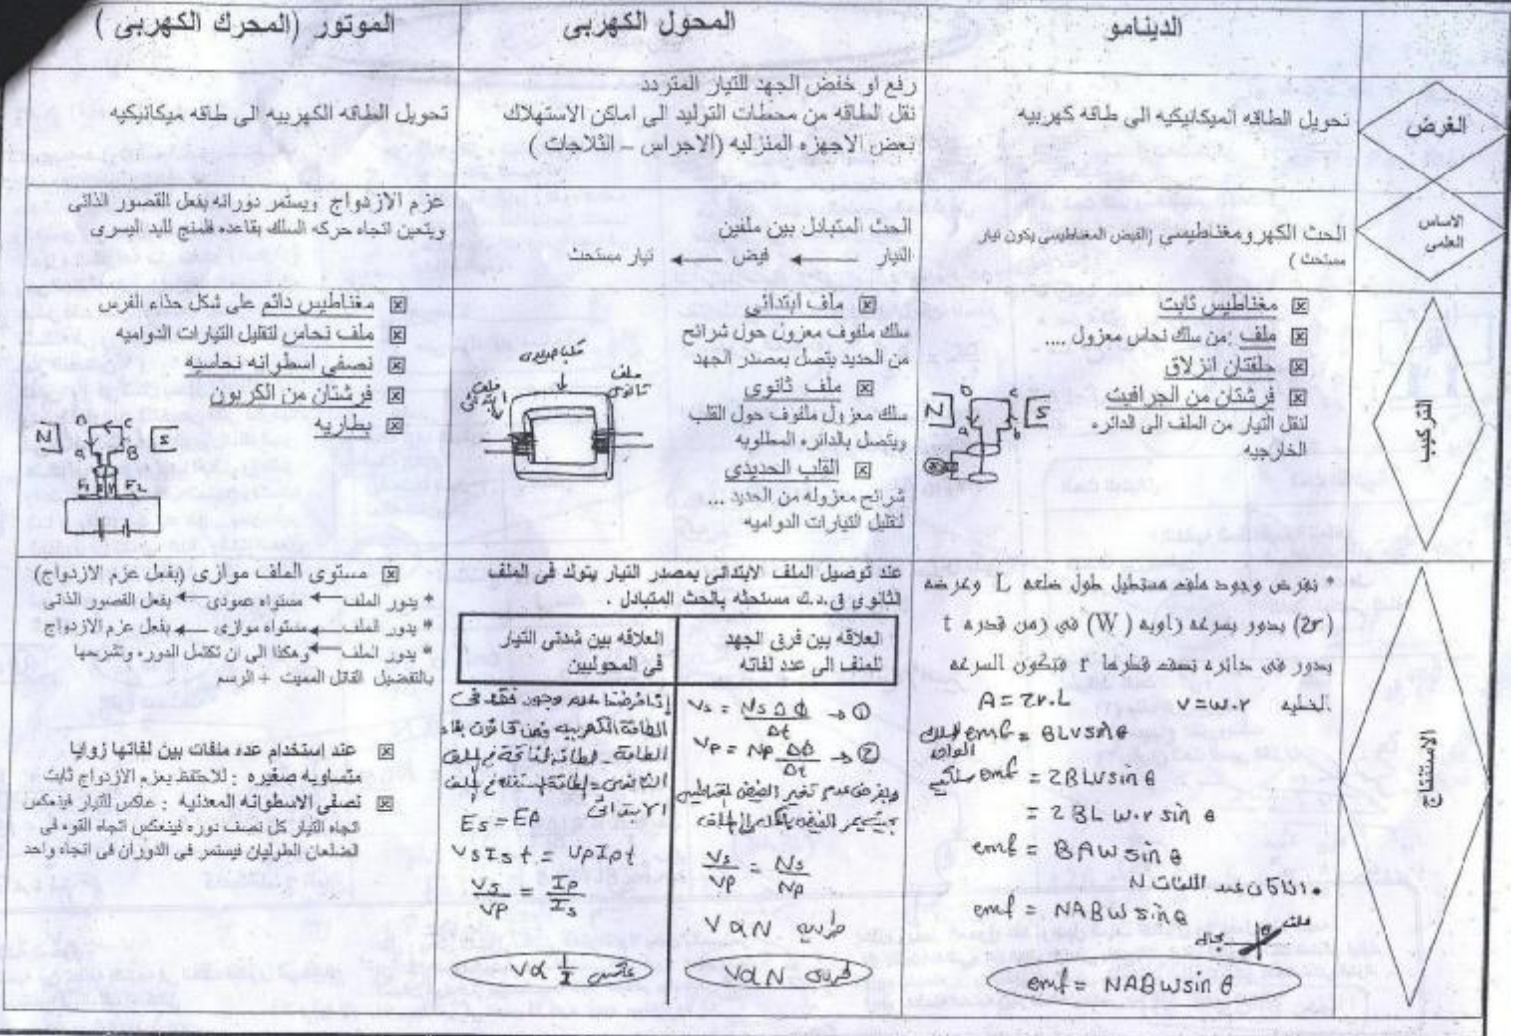 الدينامو
المحول الكهربى
الموتور (المحرك الكهربى )
الغرض
تحويل الطاقه الميكانيكيه الى طاقه كهربيه
رفع او خفض الجهد للتيار المتردد
نقل الطاقه من محطات التوليد الى اماكن الاستهلاك
بعض الاجهزه المنزليه (الاجراس – الثلاجات )
تحويل الطاقه الكهربيه الى طاقه ميكانيكيه
الاساس
العلمى
الحث الكهرومغناطيسى (الفيض المغناطيسى يكون تيار
مستحث )
الحث المتبادل بين ملفين
التيار ← فيض ← تيار مستحث
عزم الازدواج ويستمر دورانه بفعل القصور الذاتى
ويتعين اتجاه حركه السلك بقاعده فلمنج لليد اليسرى
التركيب
☒ مغناطيس ثابت
☒ ملف :من سلك نحاس معزول ....
☒ حلقتان انزلاق
☒ فرشتان من الجرافيت
لنقل التيار من الملف الى الدائره
الخارجيه
N
S
D
C
a
b
☒ ملف ابتدائى
سلك ملفوف معزول حول شرائح
من الحديد يتصل بمصدر الجهد
☒ ملف ثانوى
سلك معزول ملفوف حول القلب
ويتصل بالدائره المطلوبه
☒ القلب الحديدى
شرائح معزوله من الحديد ...
لتقليل التيارات الدواميه
ملف
ثانوى
☒ مغناطيس دائم على شكل حذاء الفرس
☒ ملف نحاس لتقليل التيارات الدواميه
☒ نصفى اسطوانه نحاسيه
☒ فرشتان من الكربون
☒ بطاريه
N
S
D
C
a
B
F1
F2
الاستنتاج
* نفرض وجود ملف مستطيل طول ضلعه L وعرضه
(2r) يدور بسرعه زاويه (W) فى زمن قدره t
يدور فى دائره نصف قطرها r فتكون السرعه
الخطيه v=w.r A=2r.L
emf = BLVsinθ
emf = 2BLVsin θ
= 2BL w.r sin θ
emf = BAW sin θ
• اذا كان عدد اللفات N
emf = NABW sin θ
ملف
مجال
emf = NABWsin θ
عند توصيل الملف الابتدائى بمصدر التيار يتولد فى الملف
الثانوى ق.د.ك مستحثه بالحث المتبادل .
العلاقه بين فرق الجهد
للملف الى عدد لفاته
Vs = Ns Δφ / Δt → ①
Vp = Np Δφ / Δt → ②
Vs / Vp = Ns / Np
V α N طرديه
V α N طرديه
العلاقه بين شدتى التيار
فى المحوليين
اذا فرضنا عدم وجود فقد فى
الطاقة الكهربيه فمن قانون بقاء
الابتدائى
Es = Ep
Vs Is t = Vp Ip t
Vs / Vp = Ip / Is
عكسى V α 1 / I
☒ مستوى الملف موازى (بفعل عزم الازدواج)
* يدور الملف ← مستواه عمودى ← بفعل القصور الذاتى
* يدور الملف ← مستواه موازى ← بفعل عزم الازدواج
* يدور الملف ← وهكذا الى ان تكتمل الدوره وتشرحها
بالتفصيل القاتل المميت + الرسم
☒ عند إستخدام عده ملفات بين لفاتها زوايا
متساويه صغيره : للاحتفظ بعزم الازدواج ثابت
☒ نصفى الاسطوانه المعدنيه : عاكس للتيار فينعكس
اتجاه التيار كل نصف دوره فينعكس اتجاه القوه فى
الضلعان الطوليان فيستمر فى الدوران فى اتجاه واحد